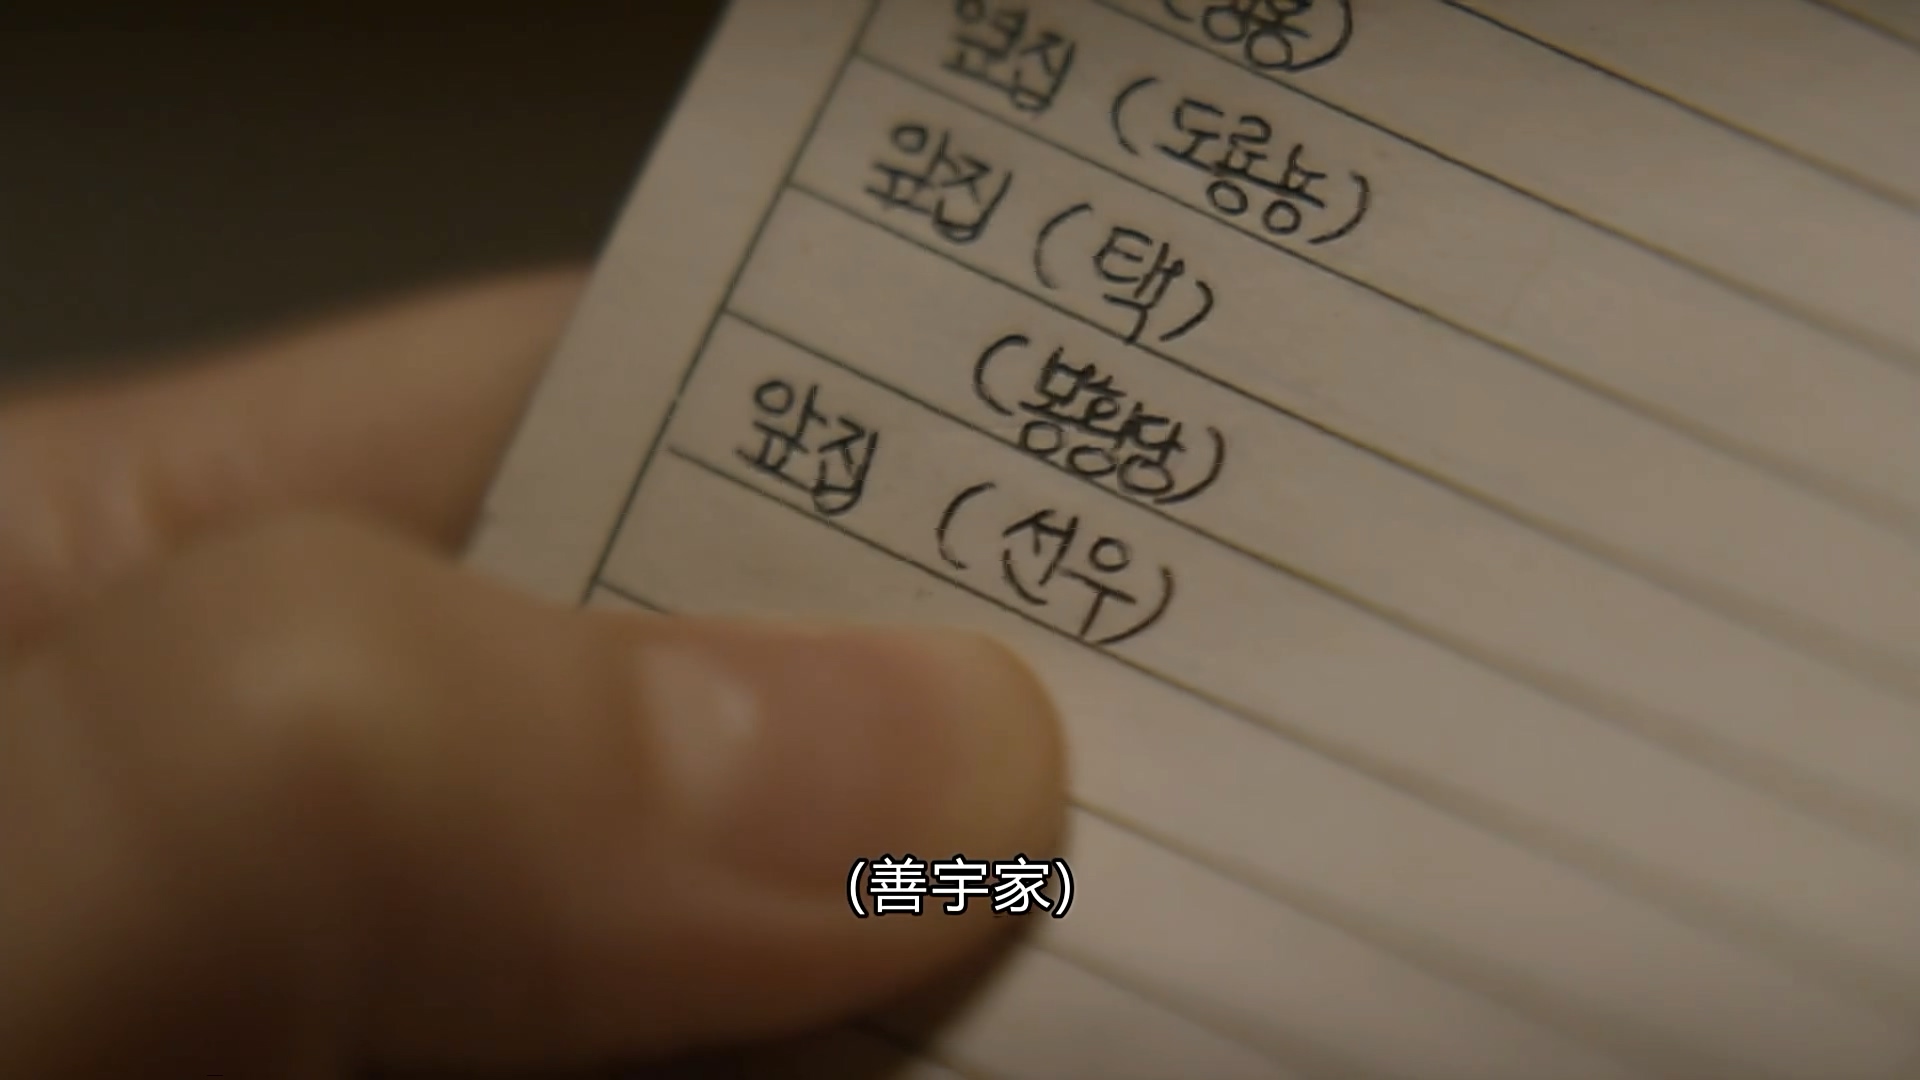 옆집 (도룡뇽)
앞집 (택)
(봉황당)
앞집 (선우)
(善宇家)